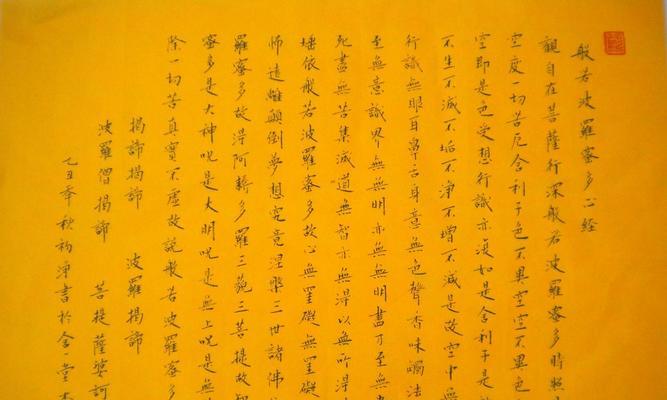 般若波羅蜜多心經
觀自在菩薩行深般若波羅蜜多時照
空度一切苦厄舍利子色不異空空不異色
空即是色受想行識亦復如是舍利子是
不生不滅不垢不淨不增不減是故空中無
行識無眼耳鼻舌身意無色聲香味觸法
至無意識界無無明亦無無明盡乃至無
死盡無苦集滅道無智亦無得以無所得
埵依般若波羅蜜多故心無罣礙無罣礙
怖遠離顛倒夢想究竟涅槃三世諸佛
羅蜜多故得阿耨多羅三藐三菩提故知
蜜多是大神咒是大明咒是無上咒是無
除一切苦真實不虛故說般若波羅蜜多
揭諦揭諦 波羅揭諦
波羅僧揭諦 菩提薩婆訶
乙丑年秋初淨書於金一堂